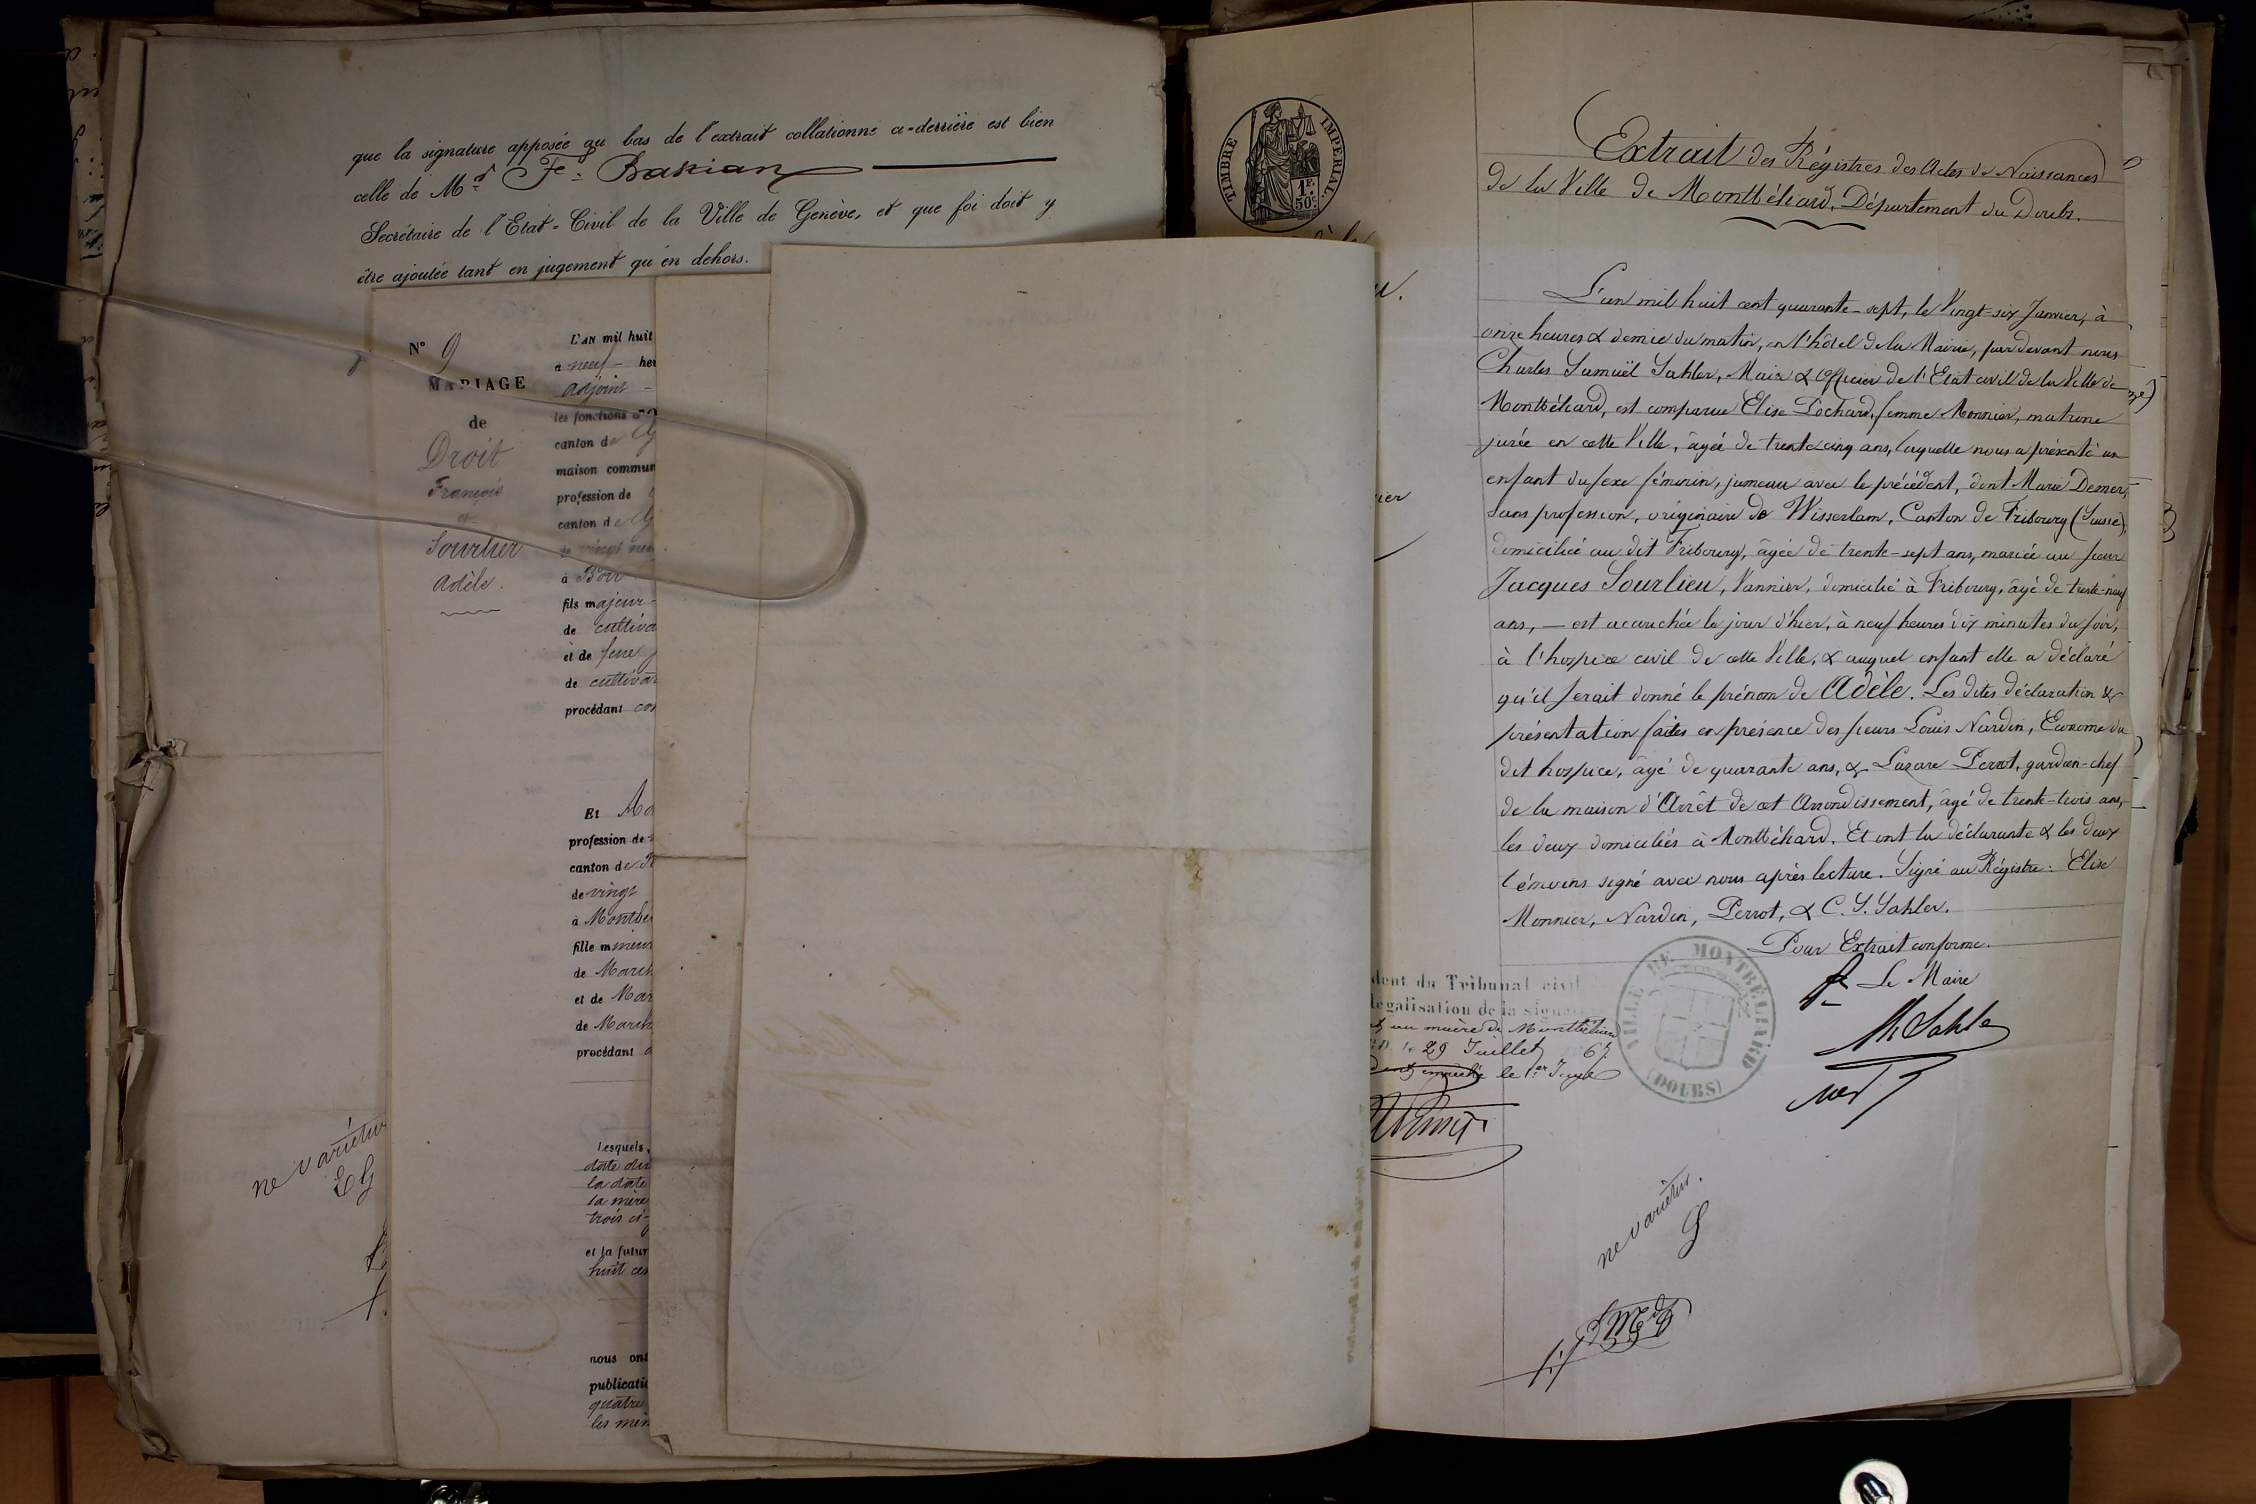 que la signature apposée au bas de l'extrait collationné ci-derrière est bien
celle de Mr. Fc. Bastian
Secrétaire de l'Etat-Civil de la Ville de Genève, et que foi doit y
être ajoutée tant en jugement qu'en dehors.
ne varietur
EG
N° 9
MARIAGE
de
Droit
François
et
Sourlier
Adèle.
L'AN mil huit
à neuf - heu
adjoint -
les fonctions
canton de
maison commun
profession de
canton de
de vingt neu
à
fils majeur
de cultiva
et de feue
de cultivat
procédant con
Et
profession de
canton de
de vingt
à Montbé
fille mineur
de March
et de Mar
de March
procédant
Lesquels,
date du
la date
sa mère
trois ci-
et la futur
huit cen
nous ont
publicatio
quatre
les mêm
TIMBRE IMPERIAL.
1F. 50c.
Extrait des Régistres des Actes de Naissances
de la Ville de Montbéliard, Département du Doubs.
L'an mil huit cent quarante-sept, le Vingt-six Janvier, à
onze heures & demie du matin, en l'hôtel de la Mairie, par devant nous
Charles Samuël Sahler, Maire & Officier de l'Etat civil de la Ville de
Montbéliard, est comparue Elise Pochard, femme Monnier, matrone
jurée en cette Ville, âgée de trente cinq ans, laquelle nous a présenté un
enfant du sexe féminin, jumeau avec le précédent, dont Marie Demer,
sans profession, originaire de Wisserlam, Canton de Fribourg (Suisse),
domiciliée au dit Fribourg, âgée de trente-sept ans, mariée au sieur
Jacques Sourlieu, Vannier, domicilié à Fribourg, âgé de trente-neuf
ans, — est accouchée le jour d'hier, à neuf heures dix minutes du soir,
à l'hospice civil de cette Ville, & auquel enfant elle a déclaré
qu'il serait donné le prénom de Adèle. Les dites déclaration &
présentation faites en présence des sieurs Louis Nardin, Econome du
dit hospice, âgé de quarante ans, & Lazare Perrot, gardien-chef
de la maison d'Arrêt de cet Arrondissement, âgé de trente-trois ans,
les deux domiciliés à Montbéliard. Et ont la déclarante & les deux
témoins signé avec nous après lecture. Signé au Régistre: Elise
Monnier, Nardin, Perrot, & C. S. Sahler.
Pour Extrait conforme.
Le Maire
Sahler
VILLE DE MONTBELIARD
(DOUBS)
dent du Tribunal civil
légalisation de la signat
mairie de Montbéliard
le 29 Juillet 67
empêché le 1er Juge
ne varietur.
G